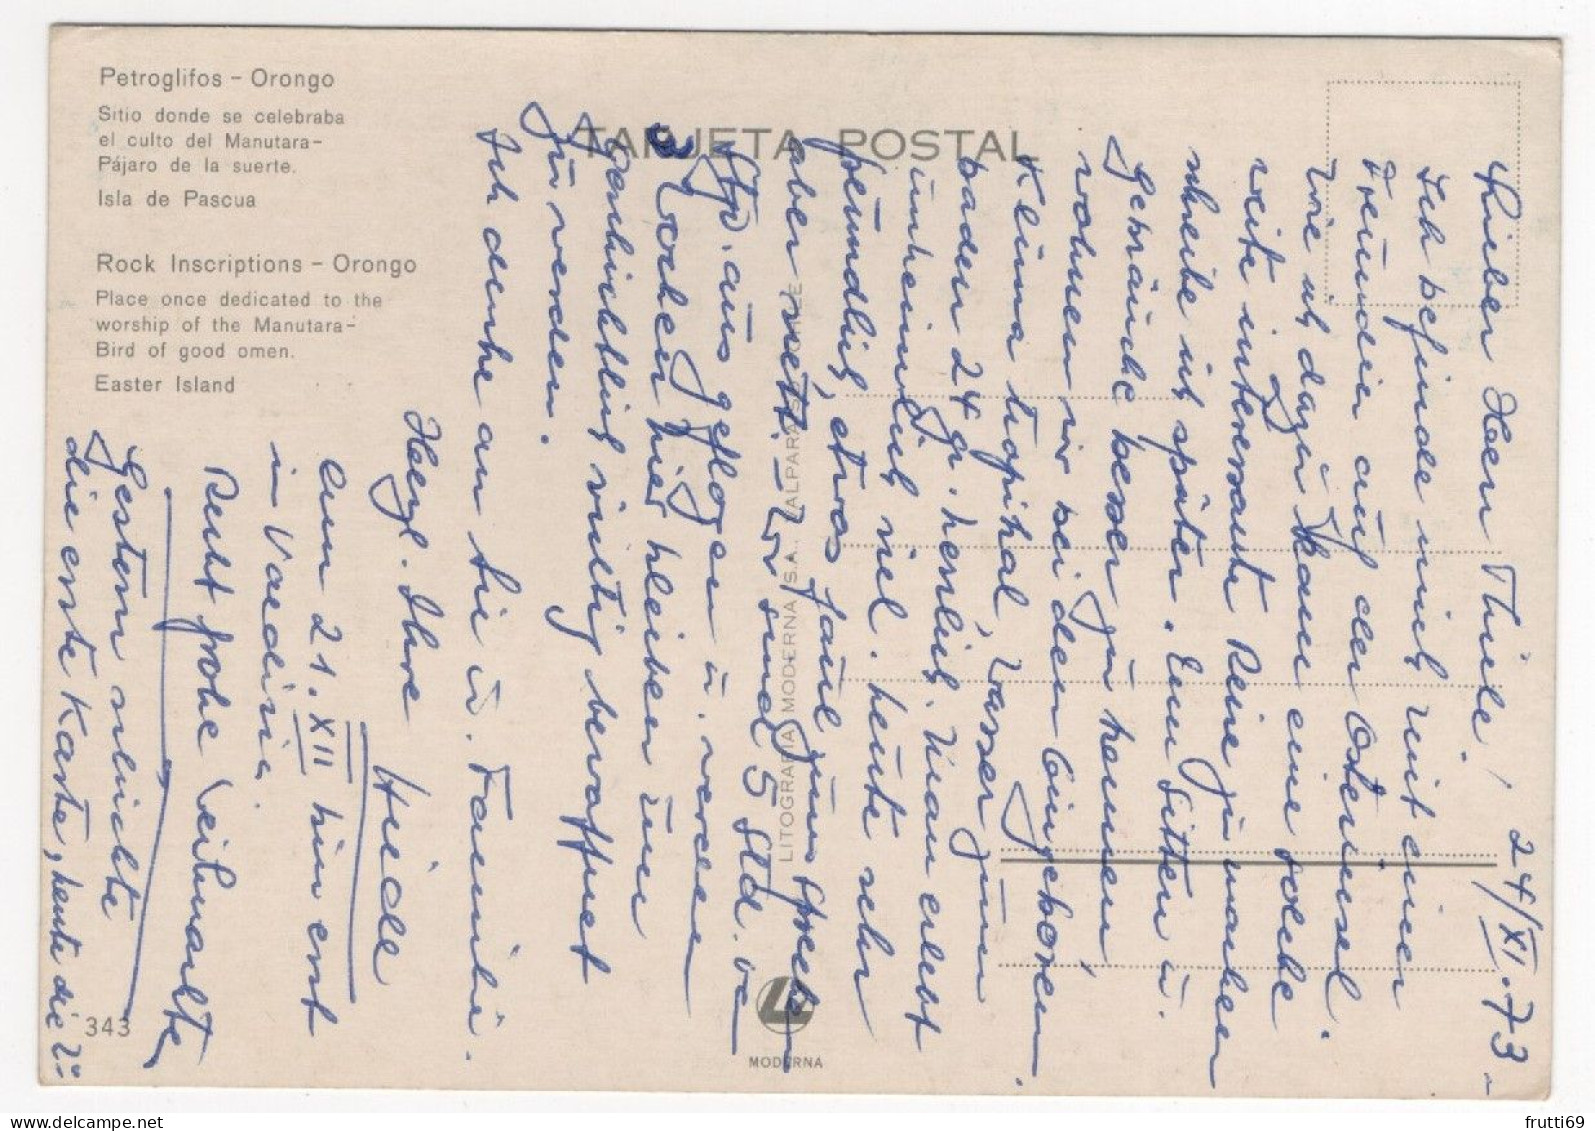 Petroglifos – Orongo
Sitio donde se celebraba
el culto del Manutara–
Pájaro de la suerte.
Isla de Pascua
Rock Inscriptions – Orongo
Place once dedicated to the
worship of the Manutara–
Bird of good omen.
Easter Island
TARJETA POSTAL
LITOGRAFIA MODERNA S.A. VALPARAISO CHILE
343
MODERNA
24/XI.73–
Lieber Herr Thiele!
Ich befinde mich mit einer
Freundin auf der Osterinsel.
Wie ich dazu kam eine solche
weite interessante Reise zu machen
schreibe ich später. Um Sitten u.
Gebräuche besser zu kennen,
wohnen wir bei den Eingeborenen.
Klima tropikal, Wasser zum
baden 24 gr. herrlich. Man erlebt
unheimlich viel. heute sehr
freundlich, etwas faul zum
aber nett. – Wir sind 5 Std. von
Stgo. aus geflogen u. werden
Wochen hier bleiben um
geschichtlich richtig bewaffnet
zu werden.
Ich denke an Sie u. Familie.
Herzl. Ihre Hilde
Am 21.XII bin erst
in Valdivia.
Recht frohe Weihnachten
Gestern schickte
die erste Karte, heute die 2.
frutti69